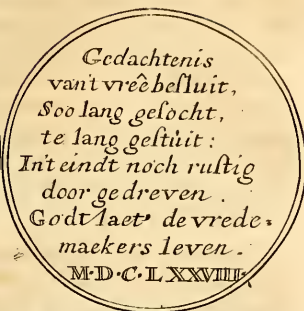 Gedachtenis
van't vreêbesluit,
Soo lang gesocht,
te lang gestuit:
In't eindt noch rustig
door gedreven.
Godt laet de vrede-
maekers leven.
M·D·C·LXXVIII·